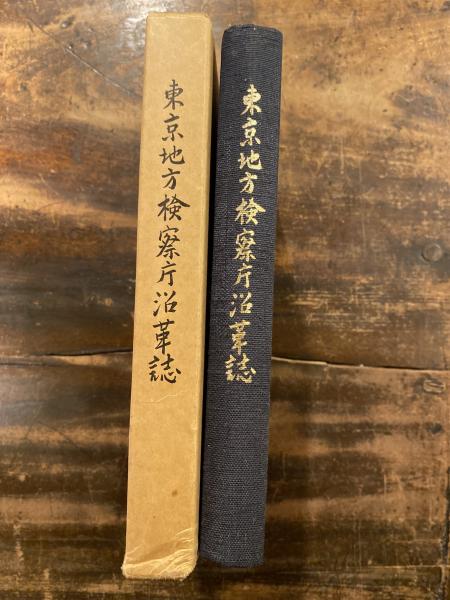 東京地方検察庁沿革誌
東京地方検察庁沿革誌